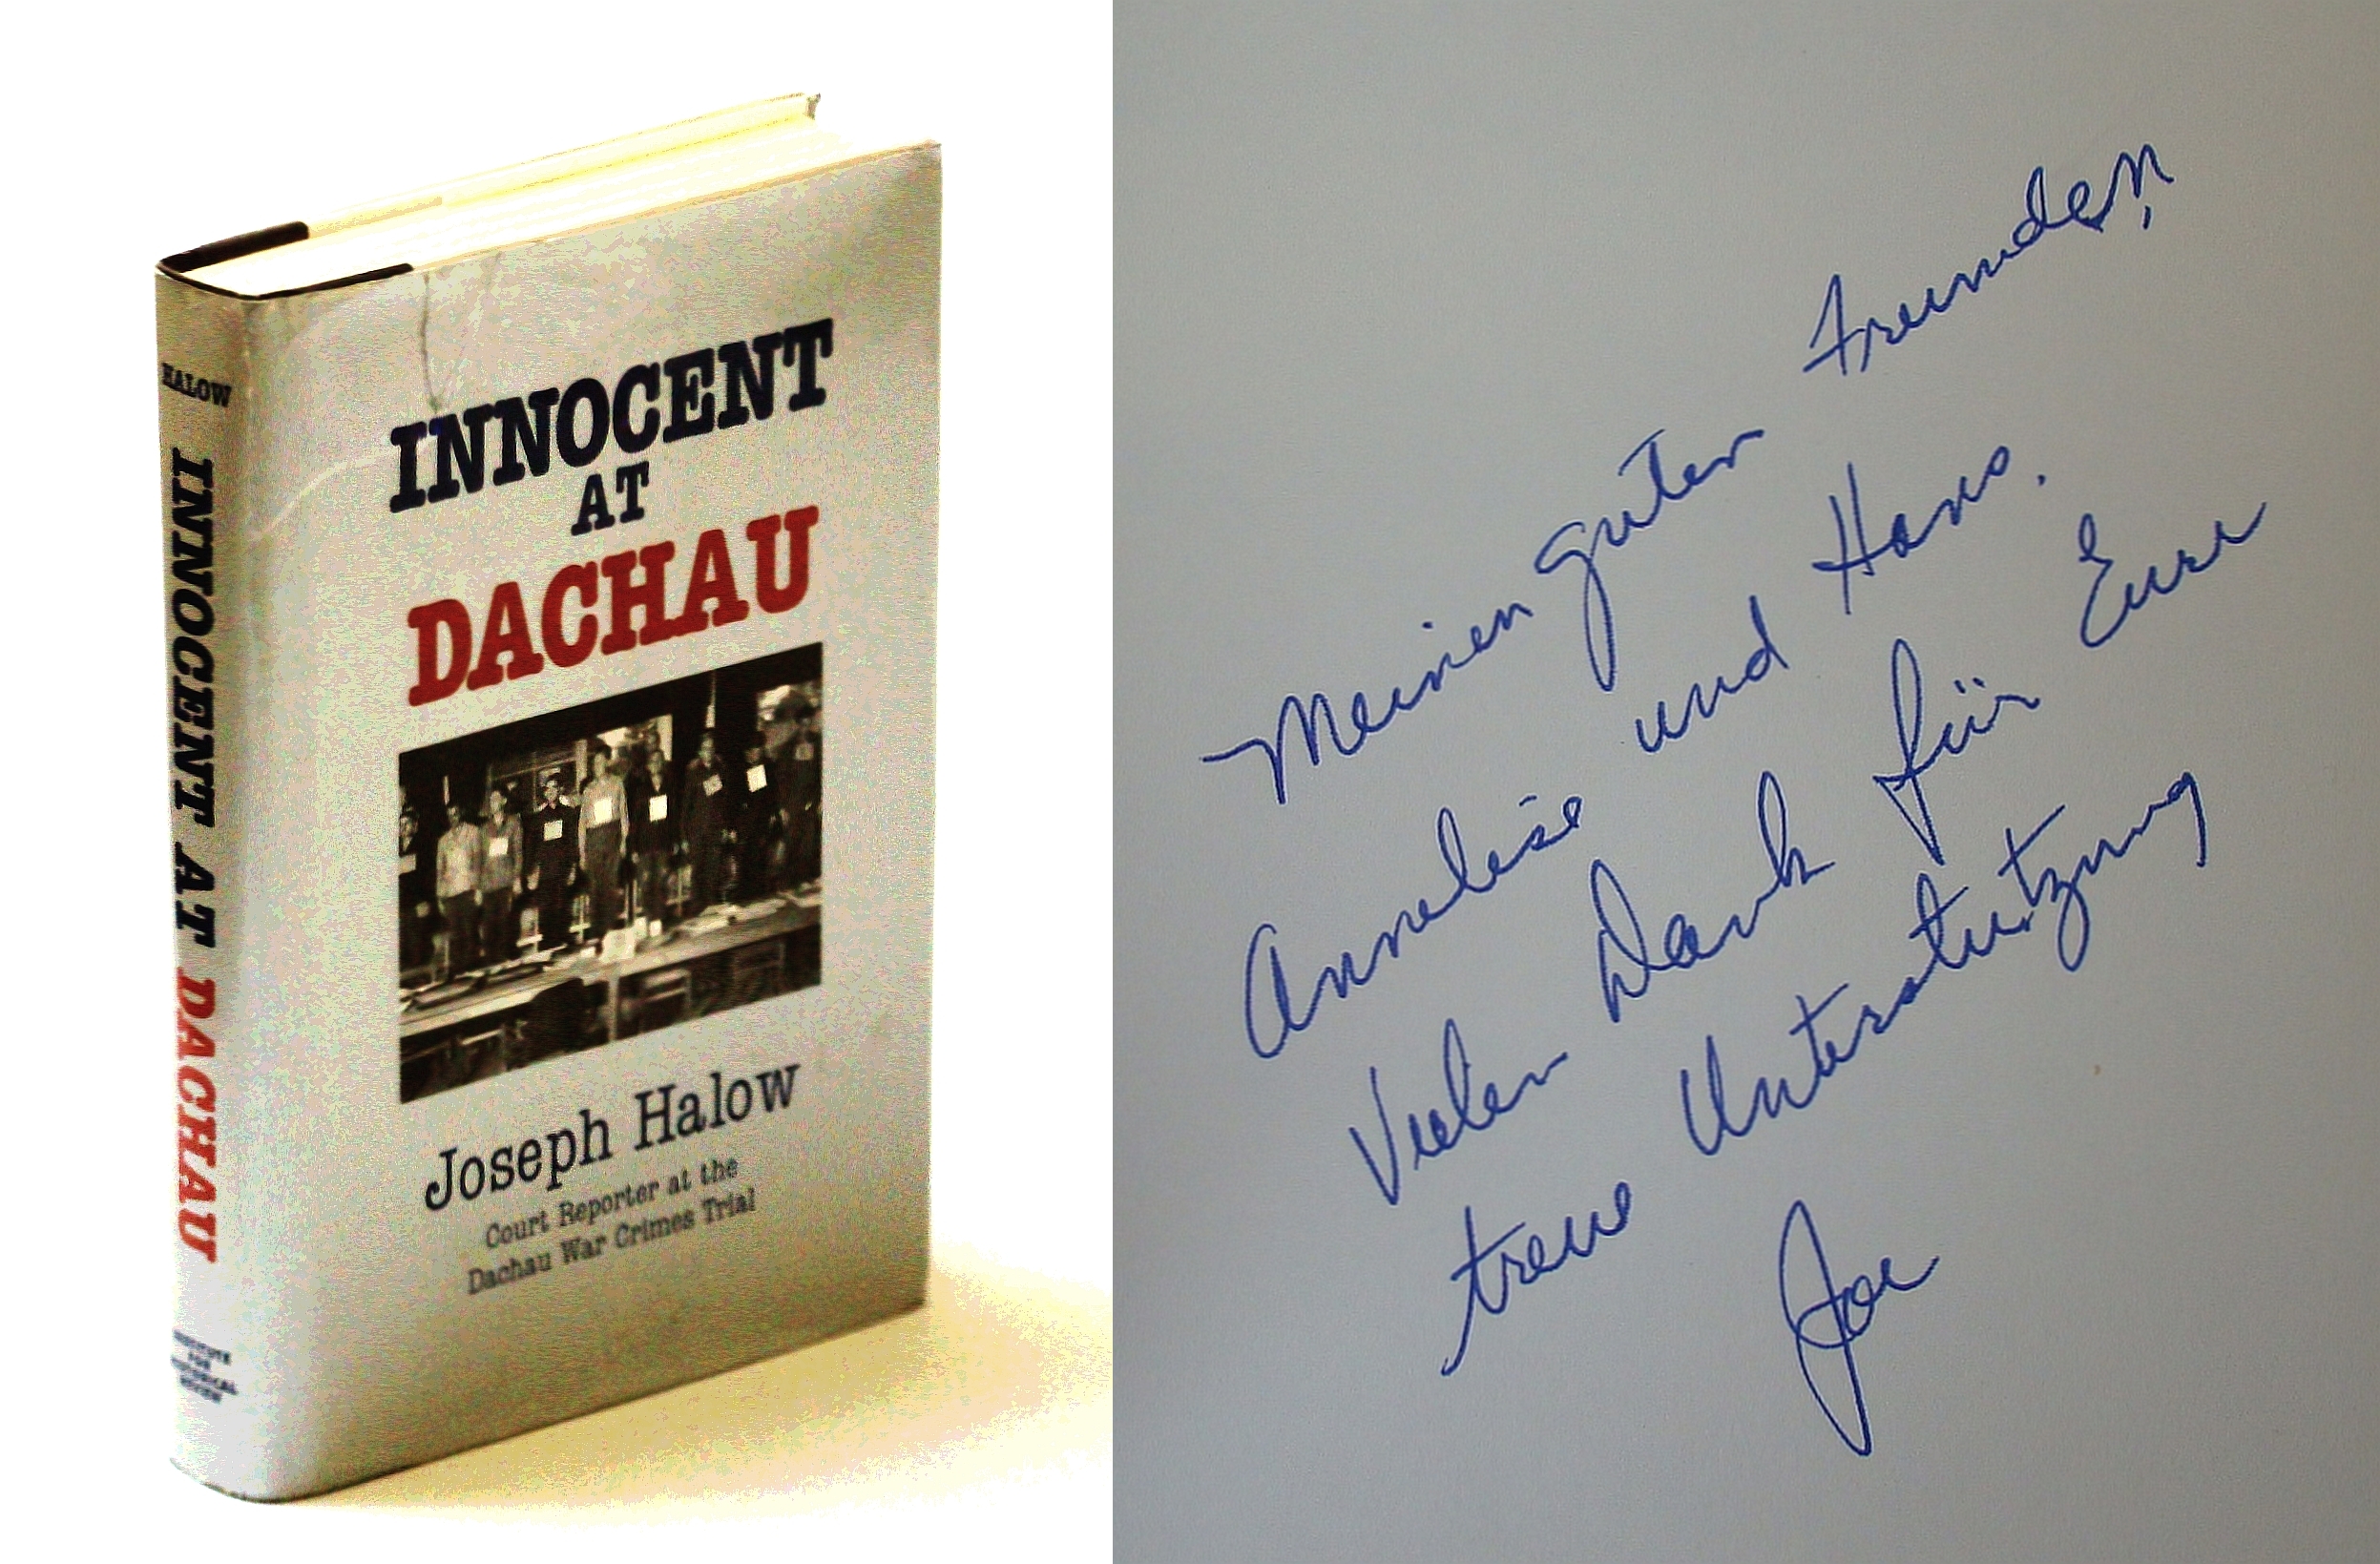 HALOW
INNOCENT AT DACHAU
INSTITUTE
FOR
HISTORICAL
REVIEW
INNOCENT
AT
DACHAU
Joseph Halow
Court Reporter at the
Dachau War Crimes Trial
Meinen guten Freunden,
Annelise und Hans.
Vielen Dank für Eure
treue Unterstutzung
Joe